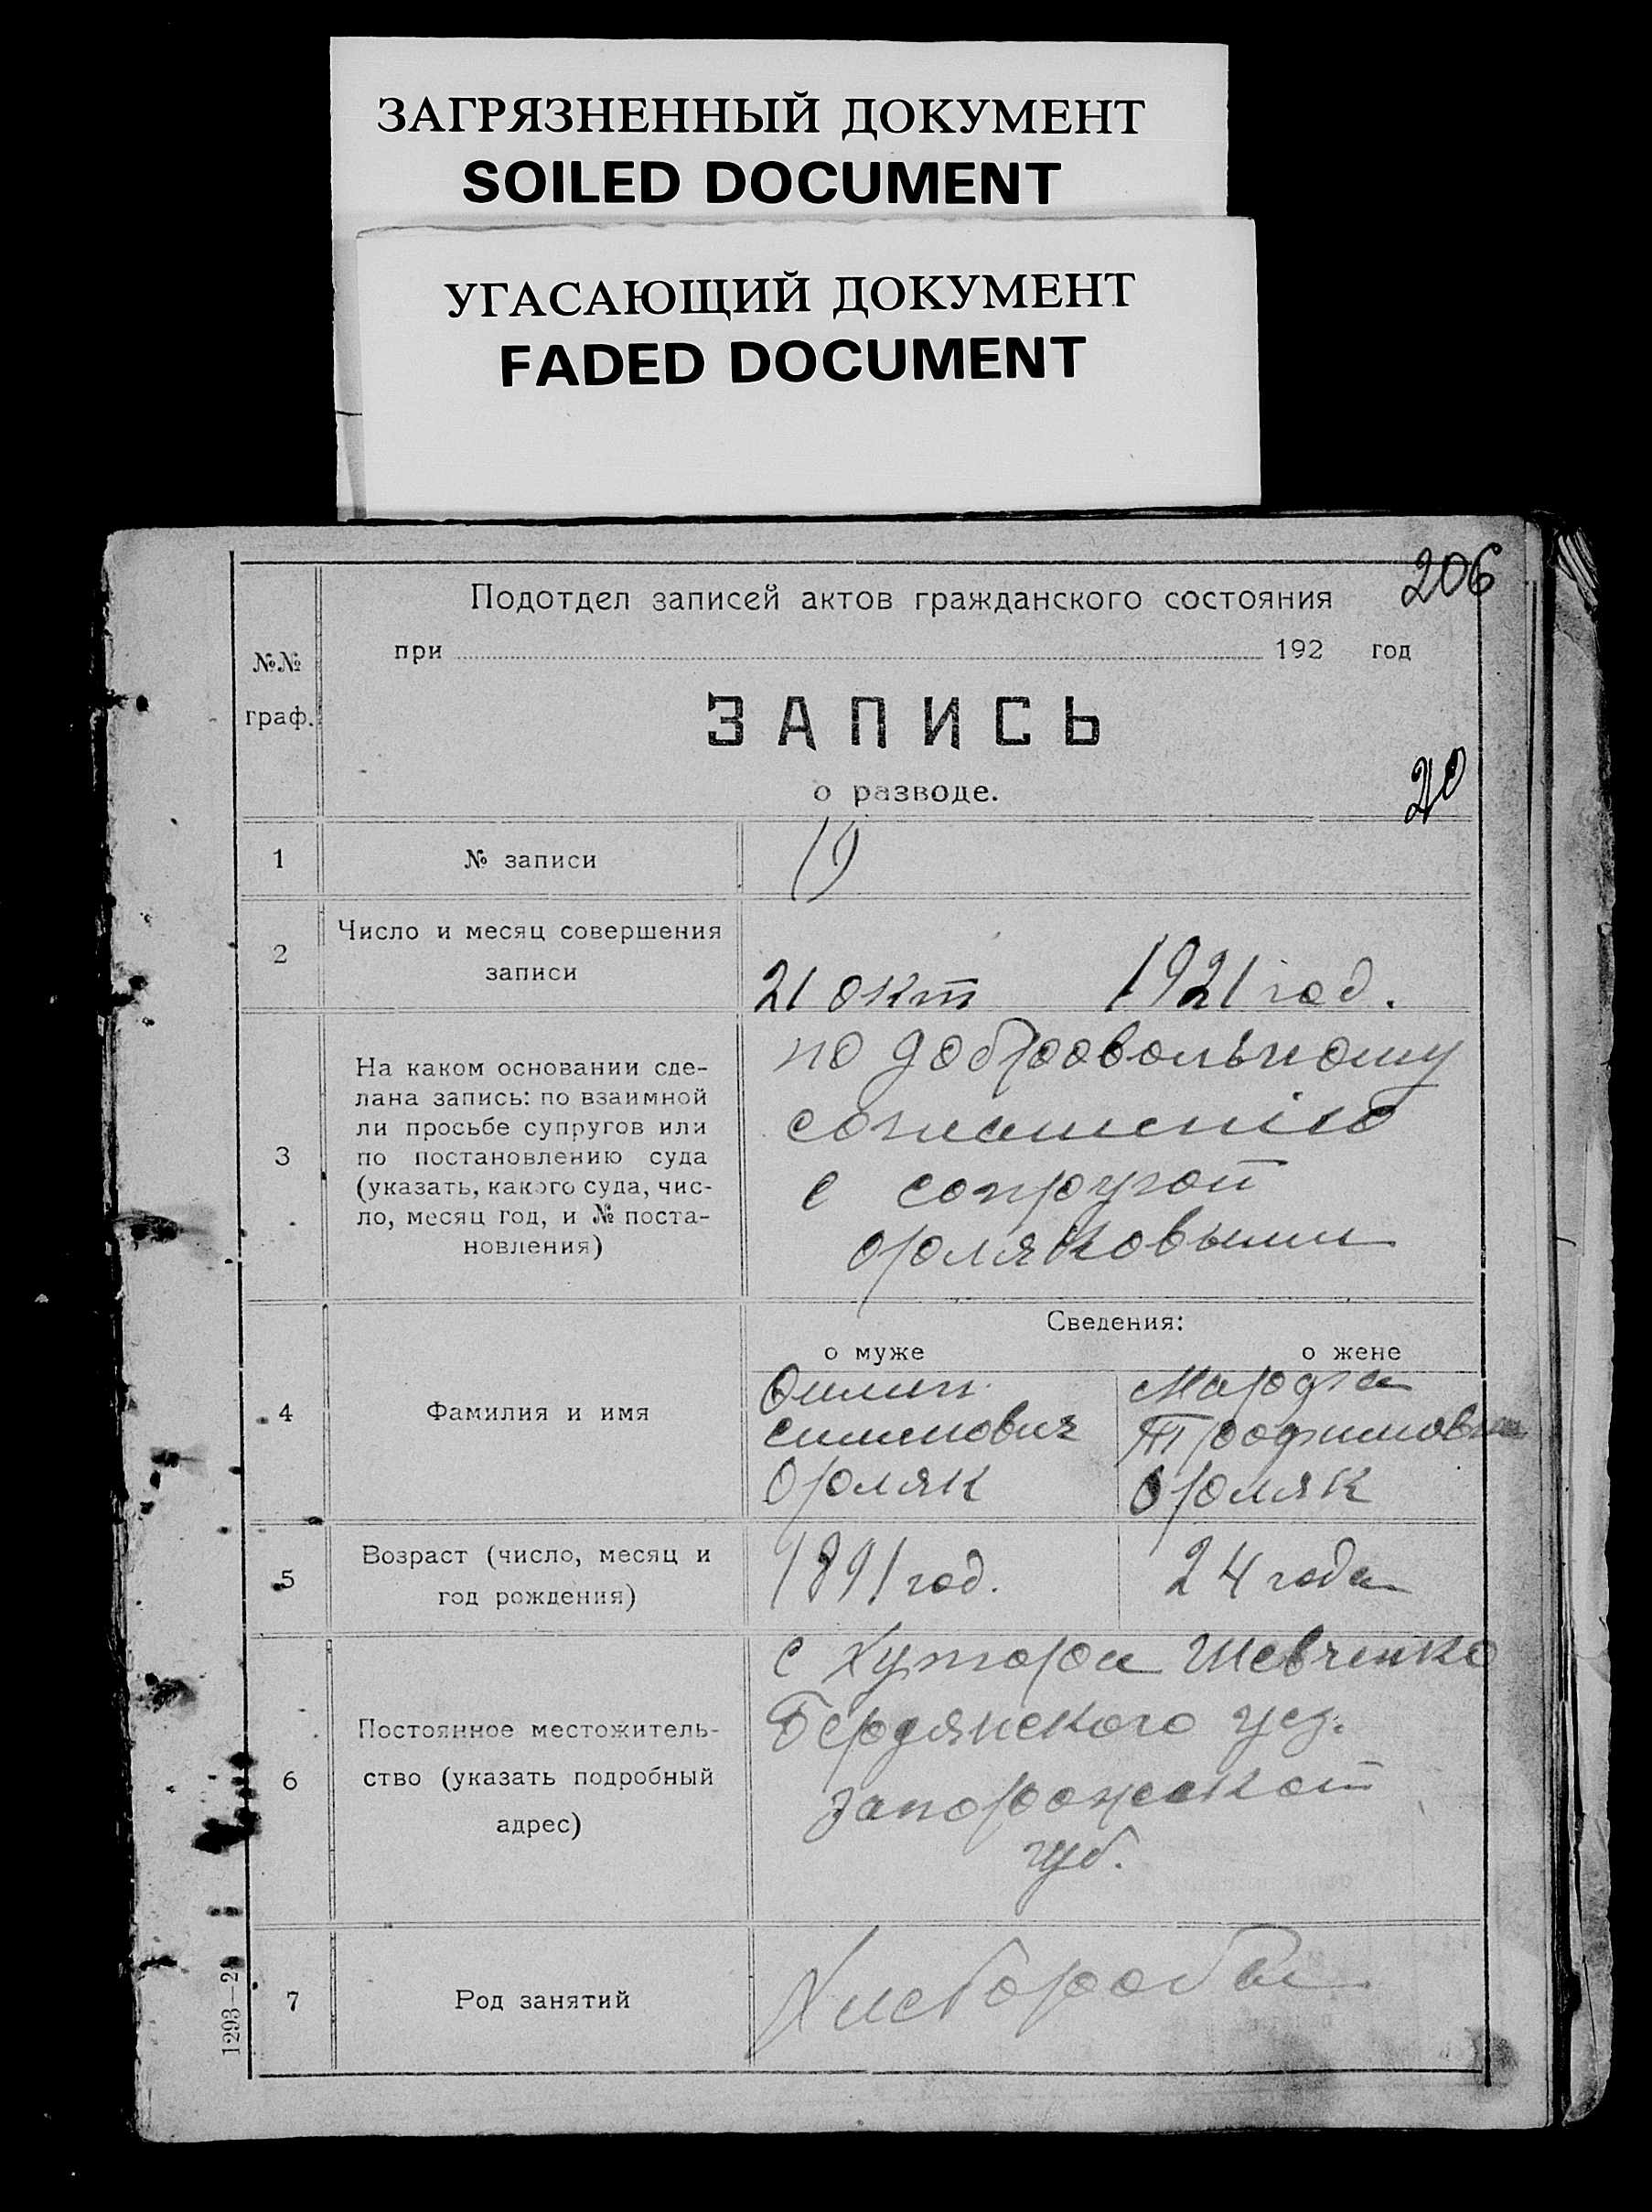 ЗАГРЯЗНЕННЫЙ ДОКУМЕНТ
SOILED DOCUMENT
УГАСАЮЩИЙ ДОКУМЕНТ
FADED DOCUMENT
206
Подотдел записей актов гражданского состояния
при 192 год
№№
граф.
ЗАПИСЬ
о разводе.
20
1
№ записи
19
2
Число и месяц совершения
записи
21 окт 1921 год.
3
На каком основании сде-
лана запись: по взаимной
ли просьбе супругов или
по постановлению суда
(указать, какого суда, чис-
ло, месяц год, и № поста-
новления)
по добровольному
соглашению
с сопругой
Ороляковыми
Сведения:
о муже
о жене
4
Фамилия и имя
Филип
Симинович
Ороляк
Марфа
Трофимовна
Ороляк
5
Возраст (число, месяц и
год рождения)
1891 год.
24 года
6
Постоянное местожитель-
ство (указать подробный
адрес)
с Хутора Шевченко
Бердянского уез.
запорожской
губ.
7
Род занятий
Хлебороб
1293—2